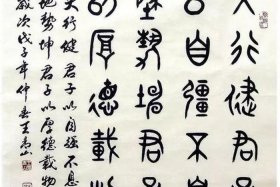 天行健君子
以自彊不息
地勢坤君子
以厚德載物
天行健君子以自強不息
地勢坤君子以厚德載物
次戊子年仲春王山